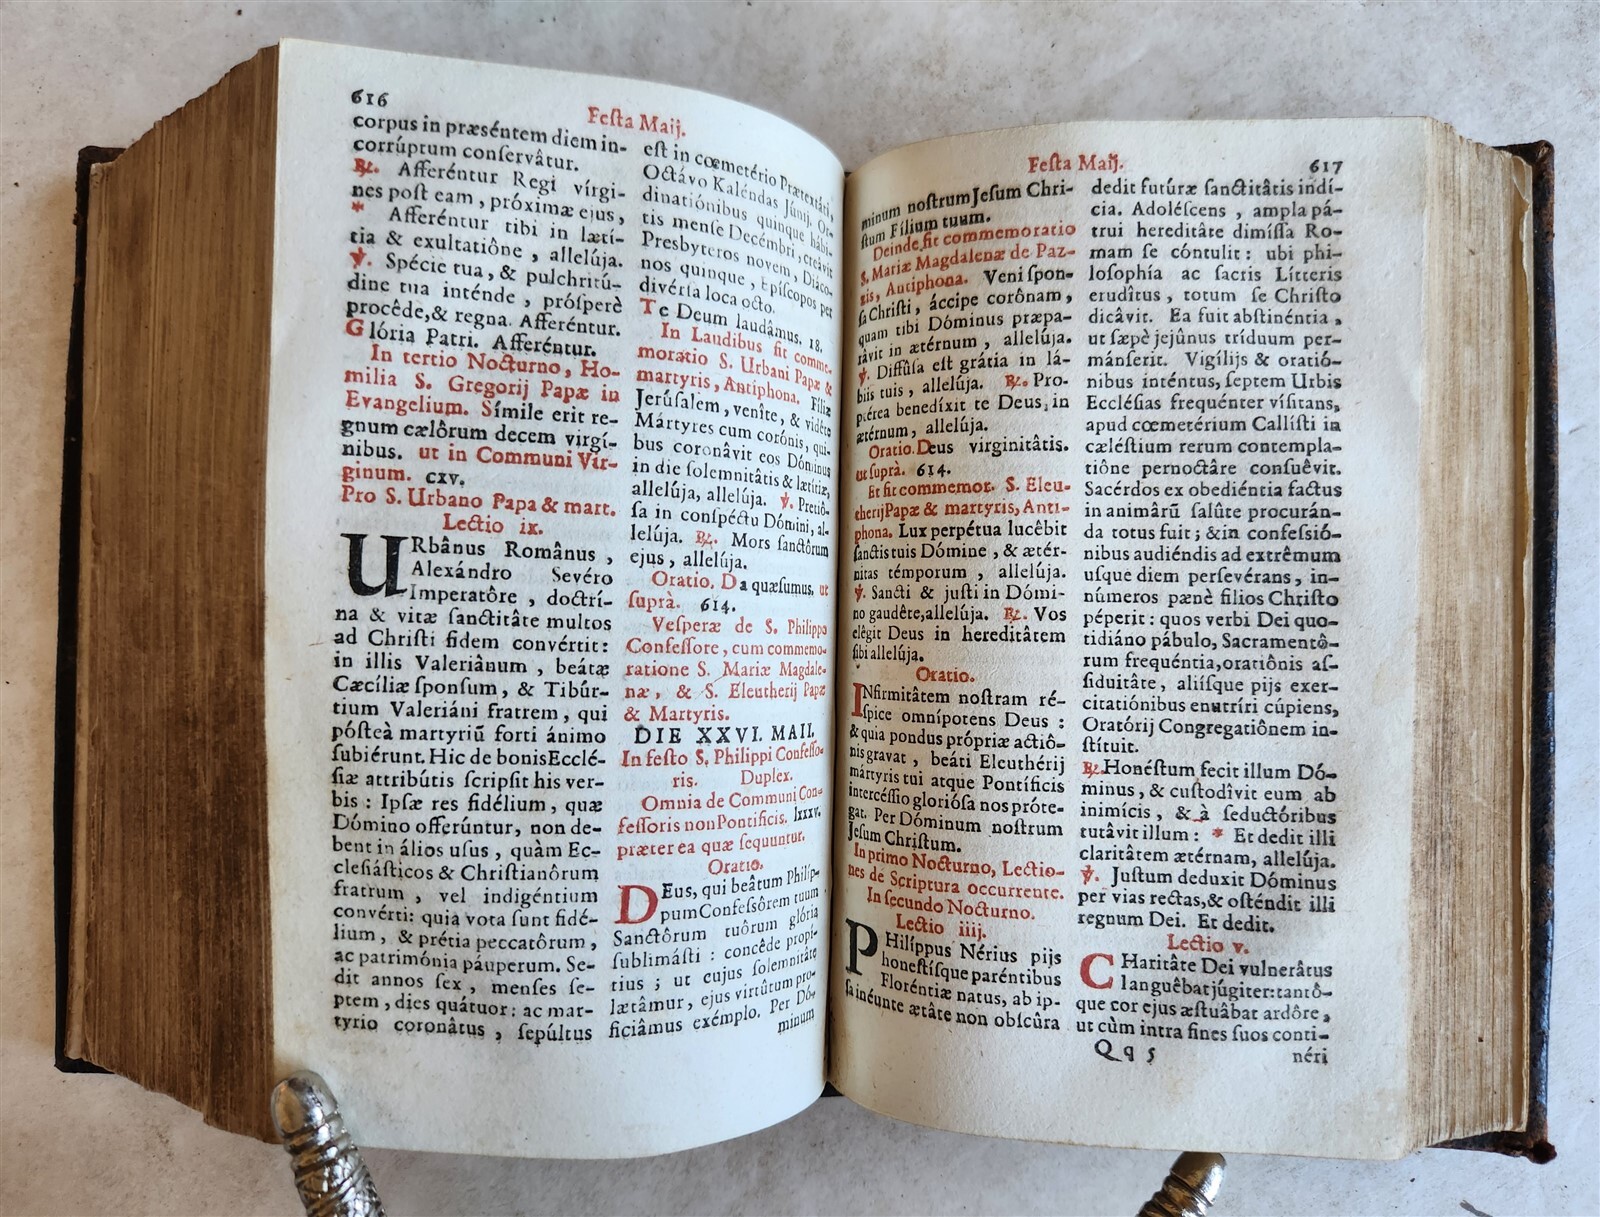 616
Feſta Maij.
corpus in præséntem diem in-
corrúptum conſervâtur.
℟. Afferéntur Regi vírgi-
nes poſt eam, próximæ ejus,
* Afferéntur tibi in lætí-
tia & exultatiône, allelúja.
℣. Spécie tua, & pulchritú-
dine tua inténde, próſperè
procêde, & regna. Afferéntur.
Glória Patri. Afferéntur.
In tertio Nocturno, Ho-
milia S. Gregorij Papæ in
Evangelium. Símile erit re-
gnum cælôrum decem virgí-
nibus. ut in Communi Vir-
ginum. cxv.
Pro S. Urbano Papa & mart.
Lectio ix.
URbânus Românus,
Alexándro Sevéro
Imperatôre, doctrí-
na & vitæ ſanctitâte multos
ad Chriſti fidem convértit:
in illis Valeriânum, beátæ
Cæcíliæ ſponſum, & Tibúr-
tium Valeriáni fratrem, qui
póſteà martyriũ forti ánimo
ſubiérunt. Hic de bonis Ecclé-
ſiæ attribútis ſcripſit his ver-
bis: Ipſæ res fidélium, quæ
Dómino offerúntur, non de-
bent in álios uſus, quàm Ec-
cleſiáſticos & Chriſtianôrum
fratrum, vel indigéntium
convérti: quia vota ſunt fidé-
lium, & prétia peccatôrum,
ac patrimónia páuperum. Se-
dit annos ſex, menſes ſe-
ptem, dies quátuor: ac mar-
tyrio coronâtus, ſepúltus
eſt in cœmetério Prætextáti,
Octávo Kaléndas Júnij. Or-
dinatiónibus quinque hábi-
tis menſe Decémbri, creâvit
Presbyteros novem, Diáco-
nos quinque, Epíſcopos per
divérſa loca octo.
Te Deum laudâmus. 18.
In Laudibus fit comme-
moratio S. Urbani Papæ &
martyris, Antiphona. Fíliæ
Jerúſalem, venîte, & vidéte
Mártyres cum corónis, qui-
bus coronâvit eos Dóminus
in die ſolemnitâtis & lætítiæ,
allelúja, allelúja. ℣. Pretiô-
ſa in conſpéctu Dómini, al-
lelúja. ℟. Mors ſanctôrum
ejus, allelúja.
Oratio. Da quæſumus, ut
ſuprà. 614.
Veſperæ de S. Philippo
Confeſſore, cum commemo-
ratione S. Mariæ Magdale-
næ, & S. Eleutherij Papæ
& Martyris.
DIE XXVI. MAII.
In feſto S. Philippi Confeſſo-
ris. Duplex.
Omnia de Communi Con-
feſſoris non Pontificis. lxxxv.
præter ea quæ ſequuntur.
Oratio.
DEus, qui beâtum Philíp-
pum Confeſsôrem tuum
Sanctôrum tuôrum glória
ſublimáſti: concêde propí-
tius; ut cujus ſolemnitâte
lætâmur, ejus virtûtum pro-
ficiâmus exémplo. Per Dó-
minum
Feſta Maij.
617
minum noſtrum Jeſum Chri-
ſtum Fílium tuum.
Deinde fit commemoratio
S. Mariæ Magdalenæ de Paz-
zis, Antiphona. Veni ſpon-
ſa Chriſti, áccipe corônam,
quam tibi Dóminus præpa-
râvit in ætérnum, allelúja.
℣. Diffúſa eſt grátia in lá-
biis tuis, allelúja. ℟. Pro-
ptérea benedíxit te Deus, in
ætérnum, allelúja.
Oratio. Deus virginitâtis.
ut ſuprà. 614.
Et fit commemor. S. Eleu-
therij Papæ & martyris, Anti-
phona. Lux perpétua lucêbit
ſanctis tuis Dómine, & ætér-
nitas témporum, allelúja.
℣. Sancti & juſti in Dómi-
no gaudête, allelúja. ℟. Vos
elêgit Deus in hereditâtem
ſibi allelúja.
Oratio.
INfirmitâtem noſtram ré-
ſpice omnípotens Deus:
& quia pondus própriæ actiô-
nis gravat, beáti Eleuthérij
mártyris tui atque Pontíficis
intercéſſio glorióſa nos próte-
gat. Per Dóminum noſtrum
Jeſum Chriſtum.
In primo Nocturno, Lectio-
nes de Scriptura occurrente.
In ſecundo Nocturno.
Lectio iiij.
PHilíppus Nérius pijs
honeſtíſque paréntibus
Floréntiæ natus, ab ip-
ſa ineúnte ætâte non obſcûra
dedit futúræ ſanctitâtis indí-
cia. Adoléſcens, ampla pá-
trui hereditâte dimíſſa Ro-
mam ſe cóntulit: ubi phi-
loſophía ac ſacris Lítteris
erudîtus, totum ſe Chriſto
dicâvit. Ea fuit abſtinéntia,
ut ſæpè jejûnus tríduum per-
mánſerit. Vigílijs & oratió-
nibus inténtus, ſeptem Urbis
Eccléſias frequénter víſitans,
apud cœmetérium Callíſti in
cæléſtium rerum contempla-
tiône pernoctâre conſuêvit.
Sacérdos ex obediéntia factus
in animârũ ſalûte procurán-
da totus fuit; & in confeſſió-
nibus audiéndis ad extrêmum
uſque diem perſevérans, in-
números pænè fílios Chriſto
péperit: quos verbi Dei quo-
tidiáno pábulo, Sacramentô-
rum frequéntia, oratiônis aſ-
ſiduitâte, aliíſque pijs exer-
citatiónibus enutríri cúpiens,
Oratórij Congregatiônem in-
ſtítuit.
℟. Honéſtum fecit illum Dó-
minus, & cuſtodîvit eum ab
inimícis, & à ſeductóribus
tutâvit illum: * Et dedit illi
claritâtem ætérnam, allelúja.
℣. Juſtum deduxit Dóminus
per vias rectas, & oſténdit illi
regnum Dei. Et dedit.
Lectio v.
CHaritâte Dei vulnerâtus
languêbat júgiter: tantô-
que cor ejus æſtuâbat ardôre,
ut cùm intra fines ſuos conti-
Qq 5
néri